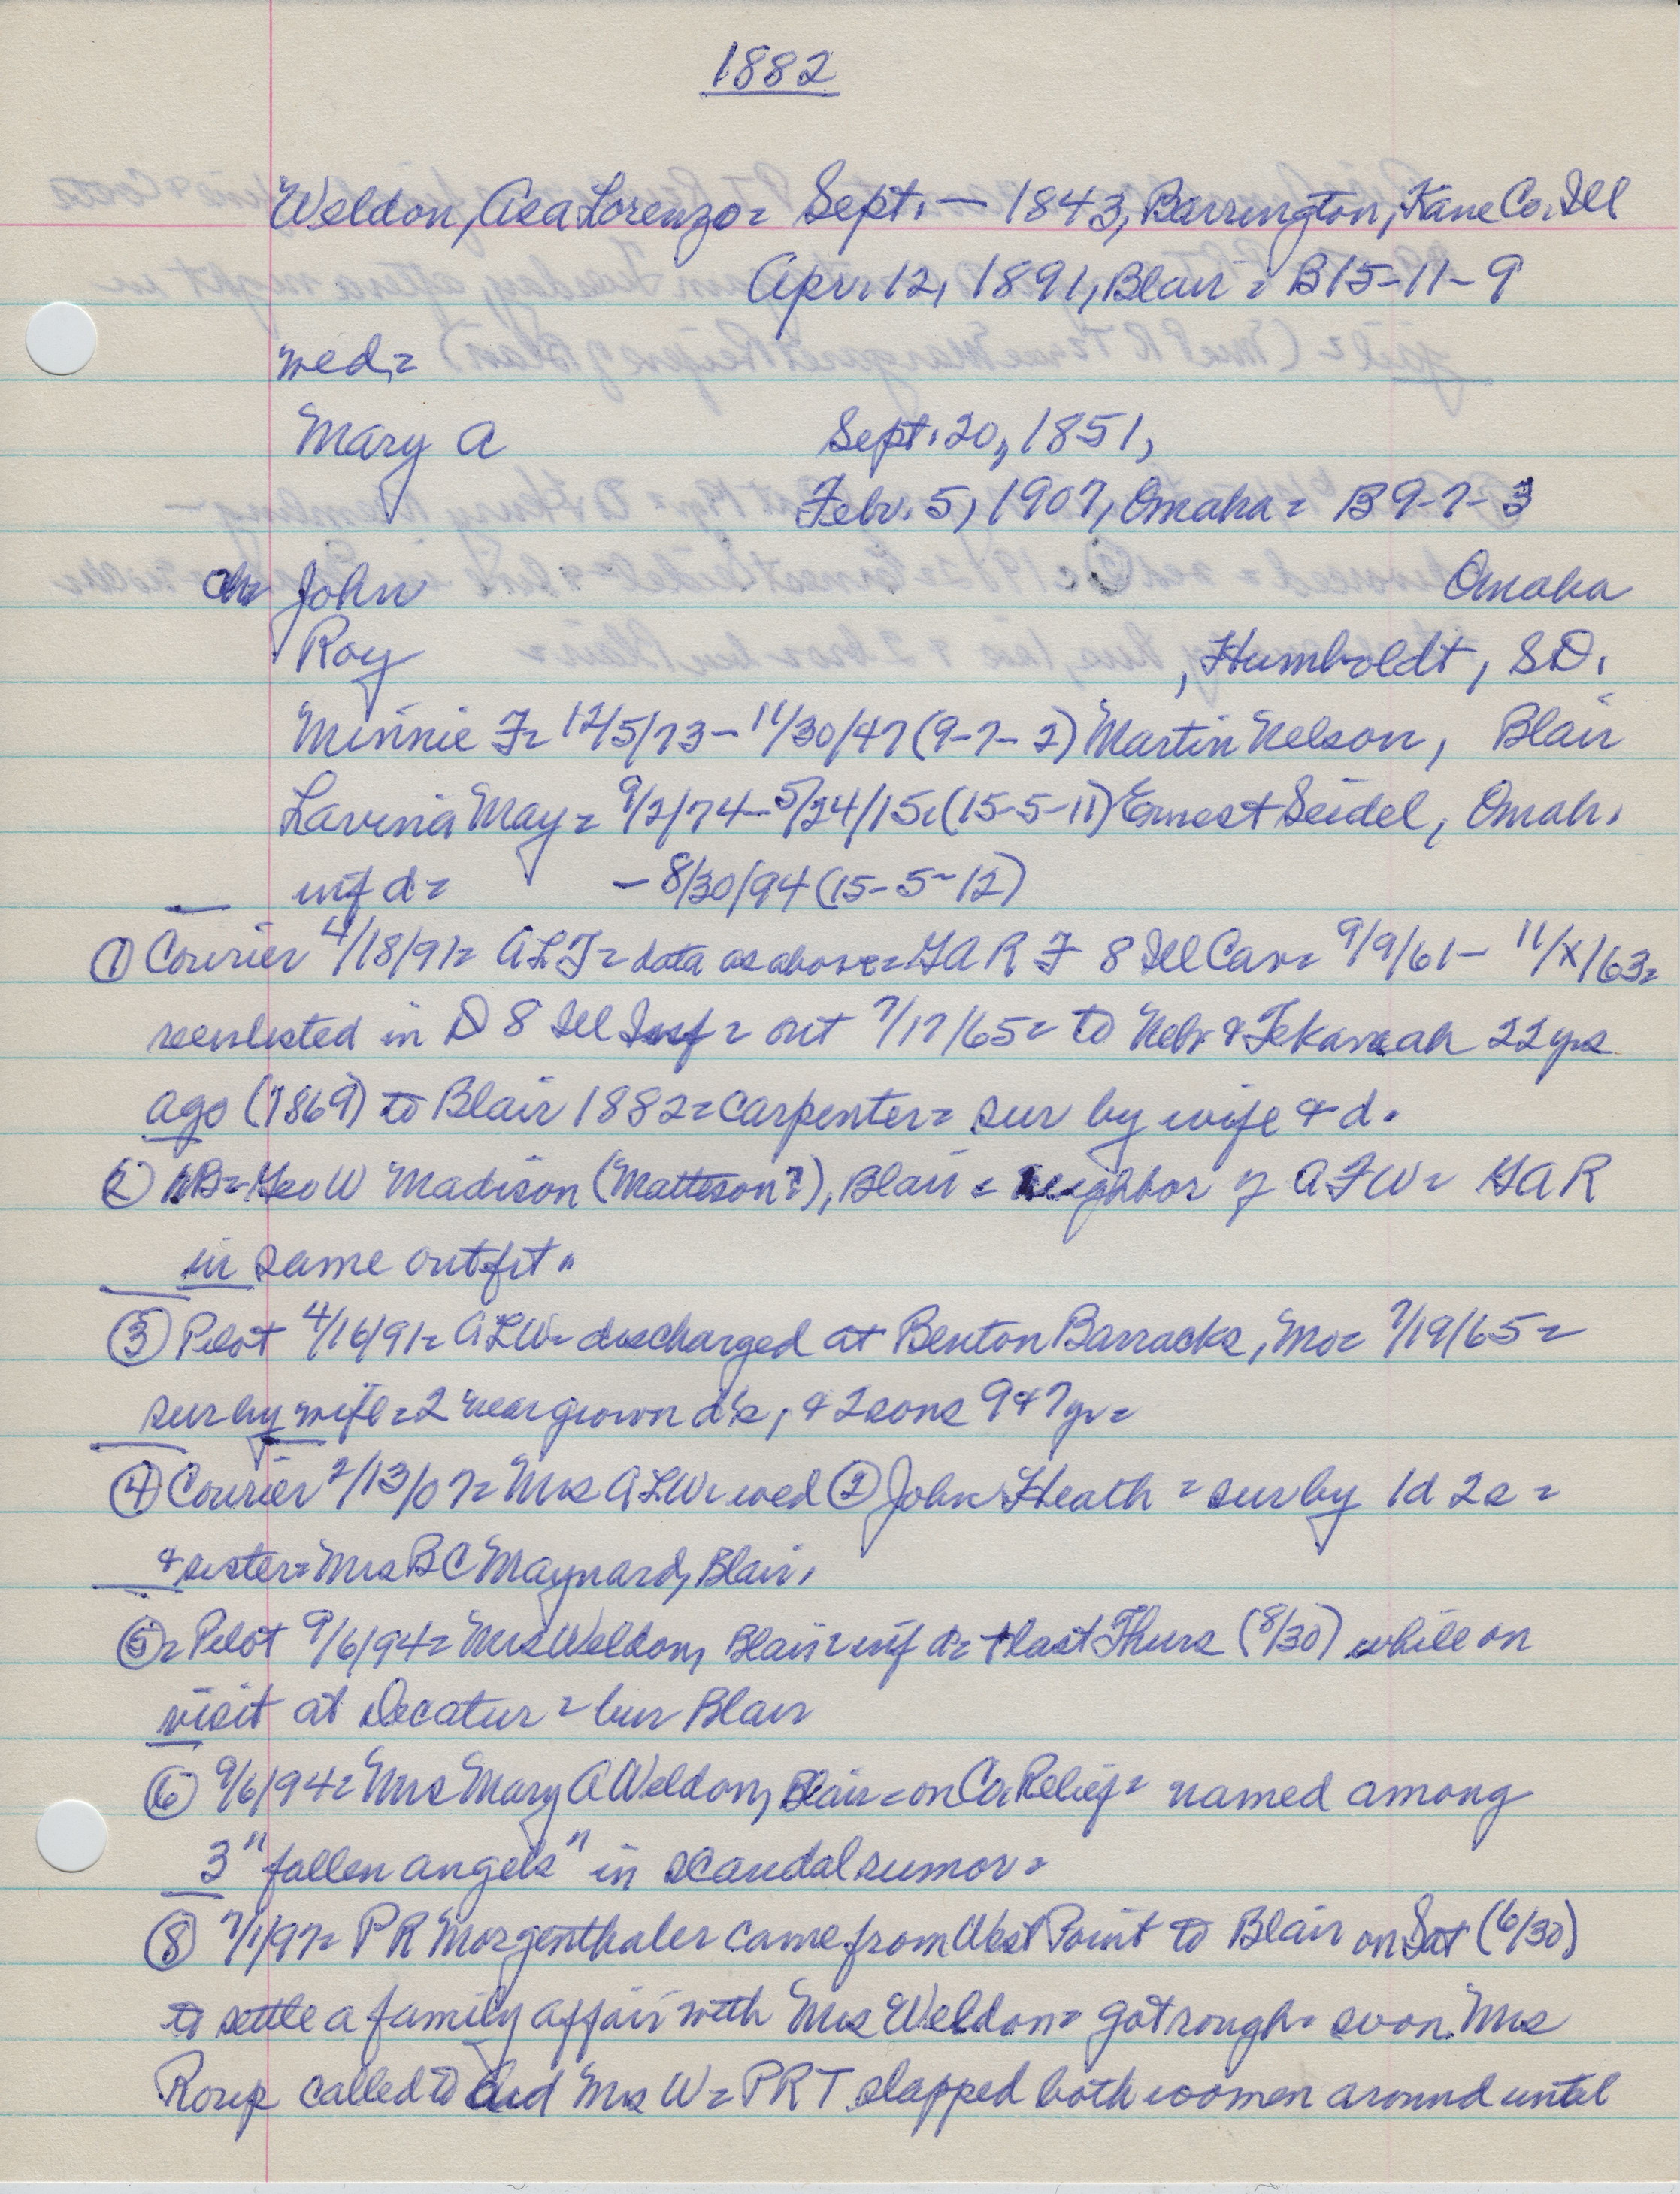 1882
Weldon, Asa Lorenzo = Sept. — 1843, Barrington, Kane Co. Ill
Apr. 12, 1891, Blair = B15-11-9
wed =
Mary A Sept. 20, 1851,
Febr. 5, 1907, Omaha = B 9-7-3
ch = John Omaha
Roy , Humboldt, SD.
Minnie F = 12/5/73 - 11/30/47 (9-7-2) Martin Nelson, Blair
Lavina May = 9/2/74 - 5/24/15. (15-5-11) Ernest Seidel, Omah.
inf d = - 8/30/94 (15-5-12)
① Courier 4/18/91 = A L = data as above = GAR F 8 Ill Cav = 9/9/61 - 11/X/63 =
reenlisted in D 8 Ill Inf = out 7/17/65 = to Nebr & Tekamah 22 yrs
ago (1869) to Blair 1882 = carpenter = sur by wife & d.
② NB = Geo W Madison (Matteson?), Blair = neighbor of A F W = GAR
in same outfit.
③ Pilot 4/16/91 = A L W = discharged at Benton Barracks, Mo = 7/19/65 =
sur by wife = 2 near grown d's, & 2 sons 9 & 7 yr =
④ Courier 2/13/07 = Mrs A L W = wed ② John Heath = sur by 1 d 2 s =
& sister = Mrs B C Maynard, Blair.
⑤ = Pilot 9/6/94 = Mrs Weldon, Blair = inf d = + last Thurs (8/30) while on
visit at Decatur = bur Blair
⑥ 9/6/94 = Mrs Mary A Weldon, Blair = on Co. Relief = named among
3 "fallen angels" in scandal rumor =
⑧ 7/1/97 = P R Morgenthaler came from West Point to Blair on Sat (6/30)
to settle a family affair with Mrs Weldon = got rough = soon Mrs
Roup called to aid Mrs W = PRT slapped both women around until